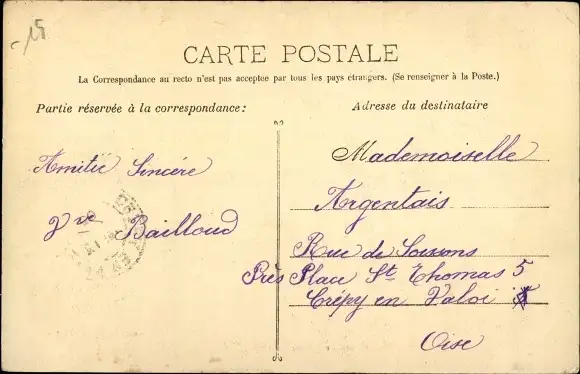 -15
CARTE POSTALE
La Correspondance au recto n'est pas acceptée par tous les pays étrangers. (Se renseigner à la Poste.)
Partie réservée à la correspondance:
Amitié Sincère
Vve Bailloud
Adresse du destinataire
Mademoiselle
Argentais
Rue de Soissons
Près Place St Thomas 5
Crépy en Valoi
Oise